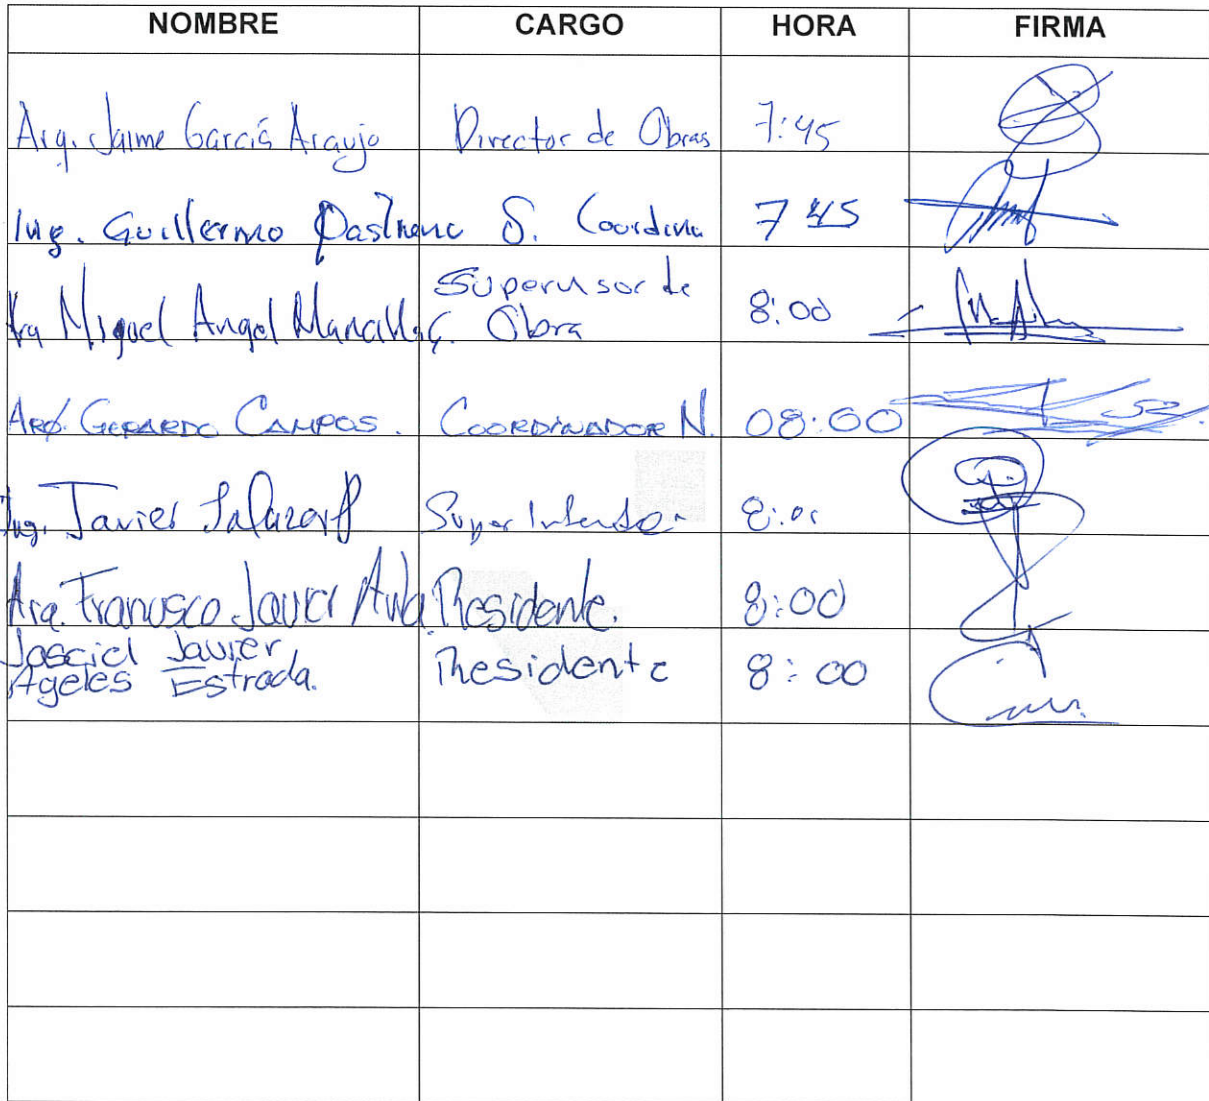 NOMBRE CARGO HORA FIRMA
Arq. Jaime García Araujo Director de Obras 7:45
Ing. Guillermo Pastrana S. Coordina 7 45
Miguel Angel Supervisor de
Obra 8:00
ARQ. GERARDO CAMPOS. COORDINADOR N. 08:00
Ing. Javier Salazar
Arq. Francisco Javier Avila Residente. 8:00
Josciel Javier
Ageles Estrada. Residente 8:00